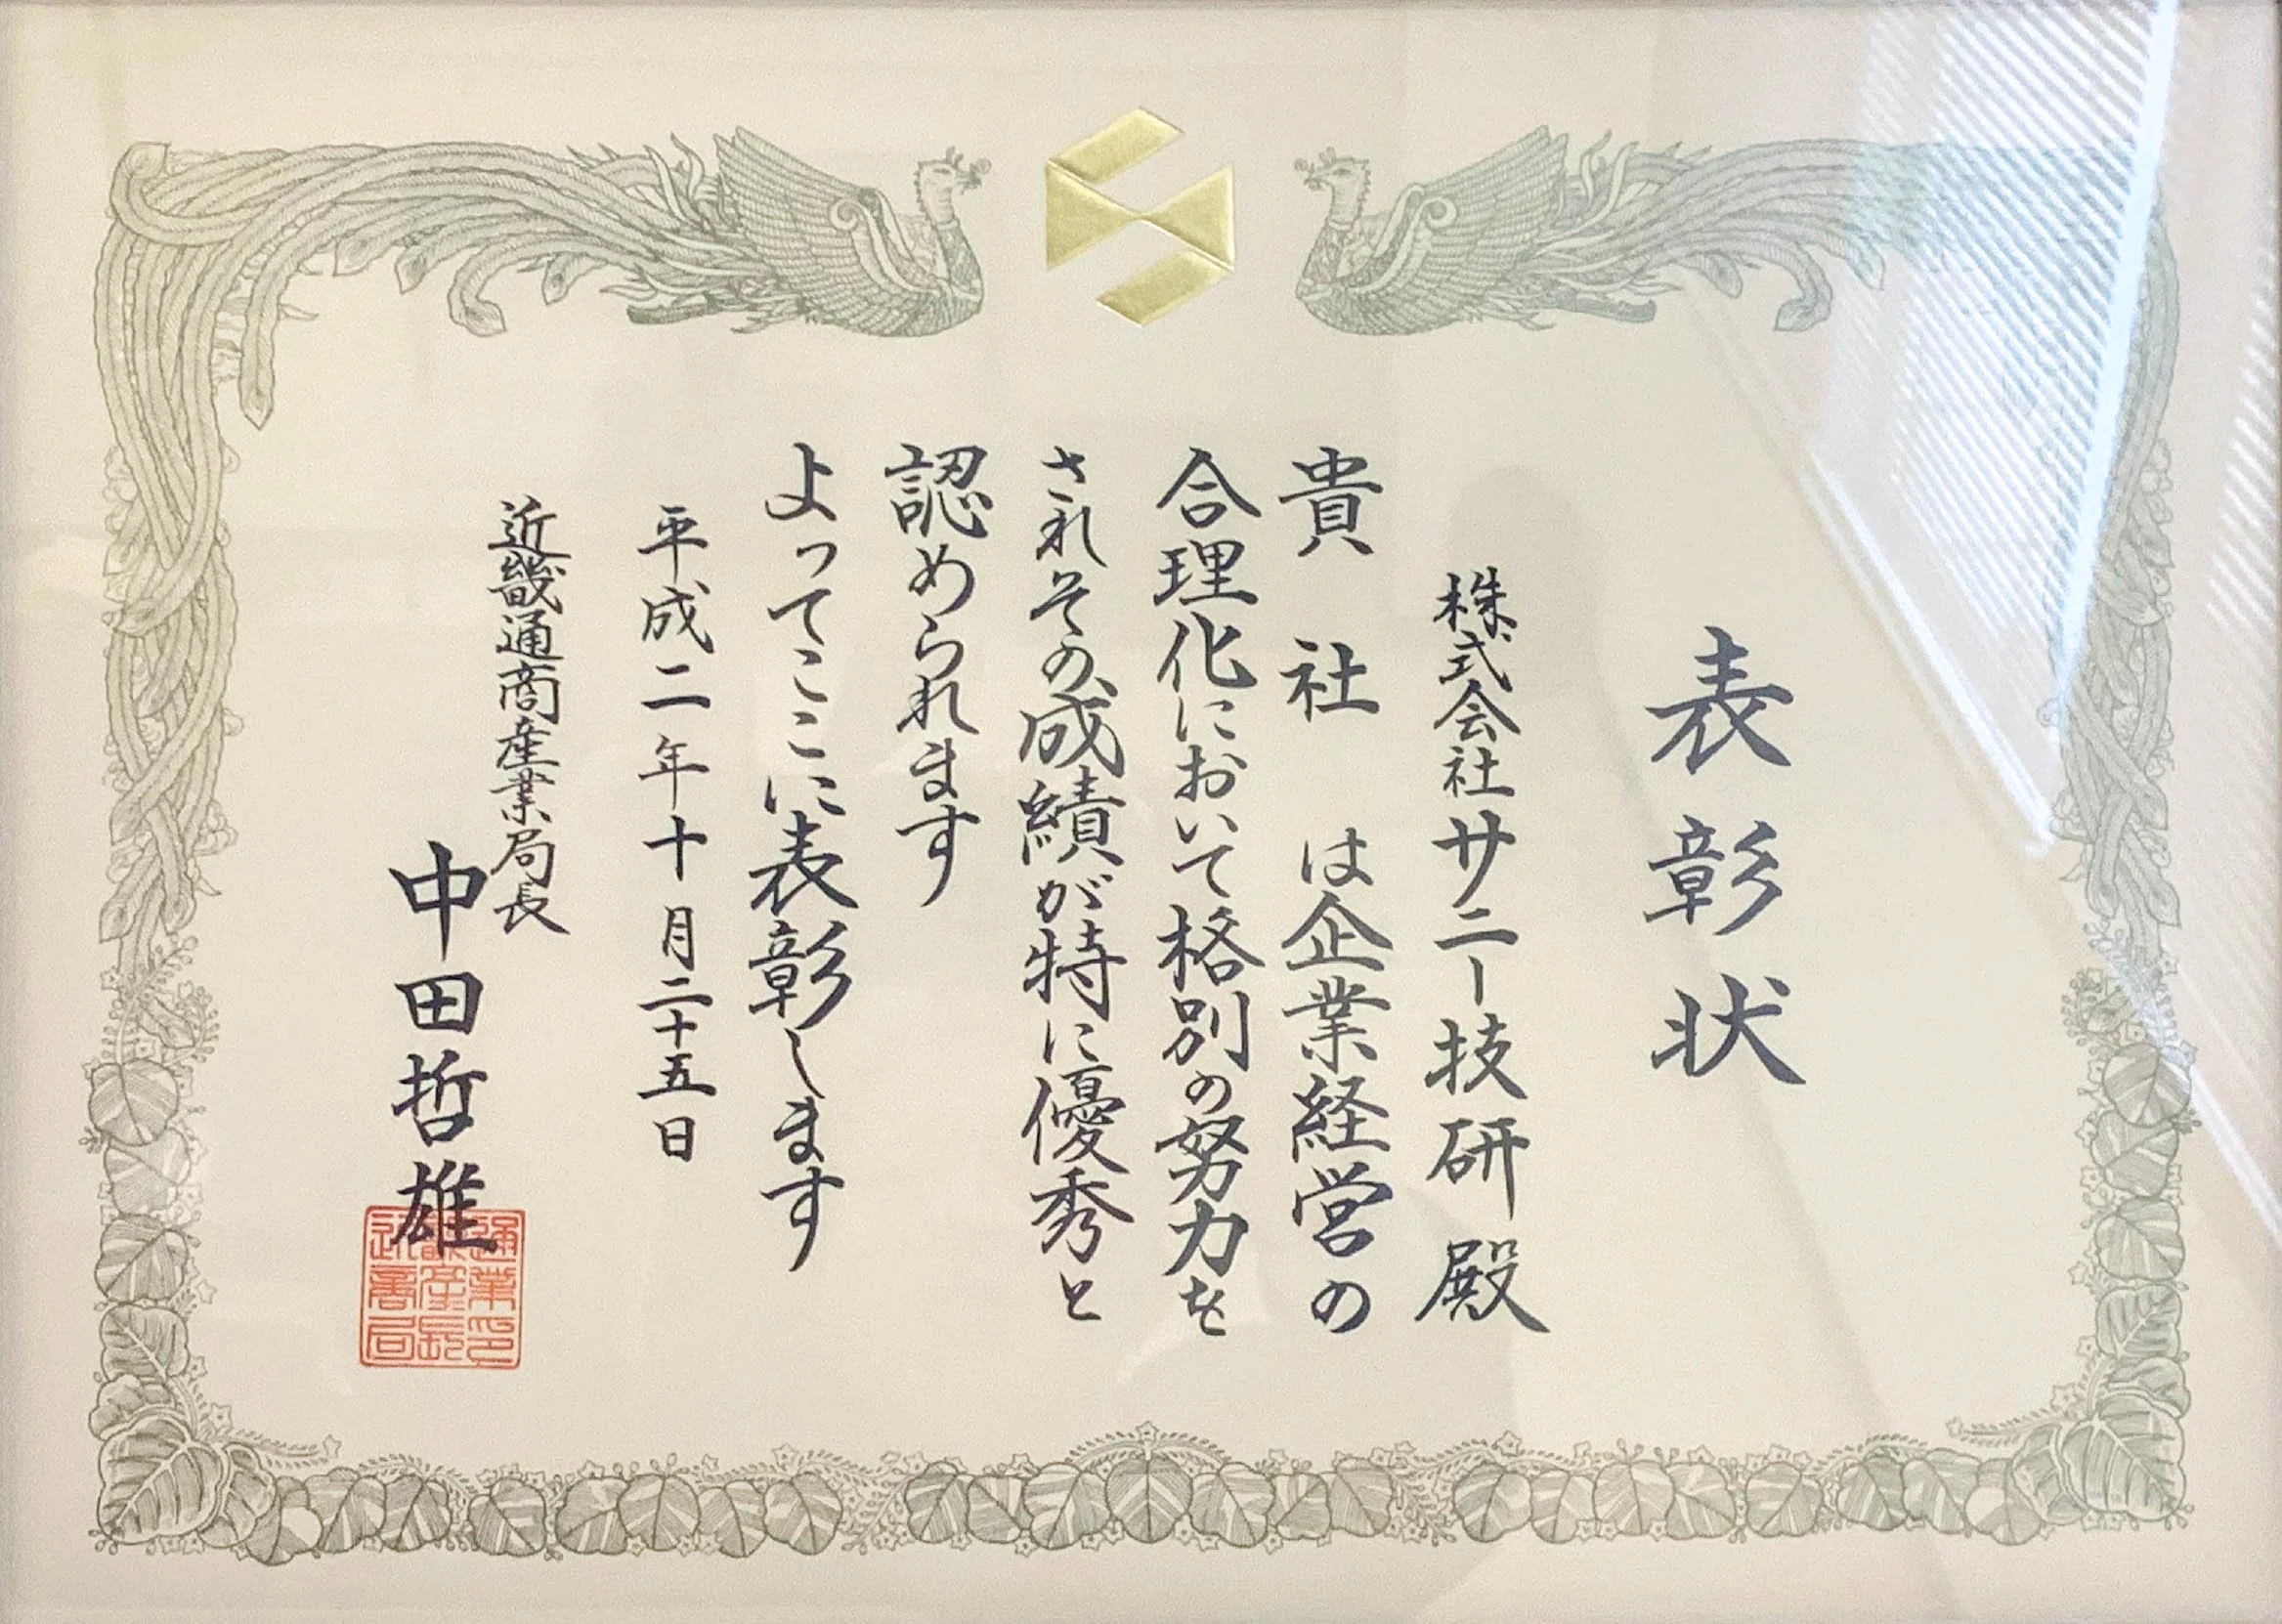 表彰状
株式会社サニー技研殿
貴社は企業経営の
合理化において格別の努力を
されその成績が特に優秀と
認められます
よってここに表彰します
平成二年十月二十五日
近畿通商産業局長
中田哲雄